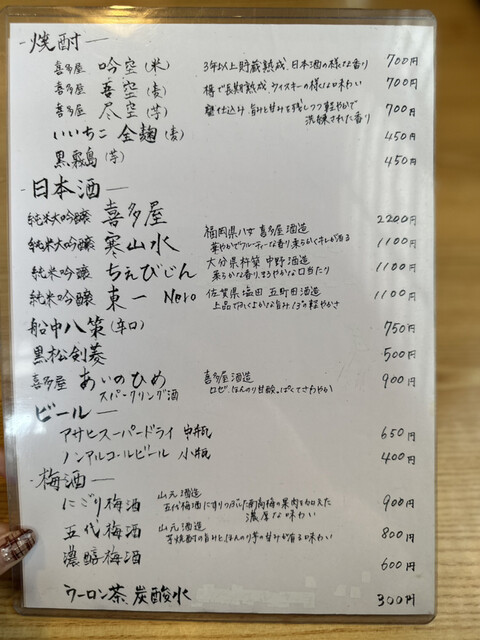 -焼酎-
喜多屋 吟空(米) 3年以上貯蔵熟成、日本酒の様な香り 700円
喜多屋 吾空(麦) 樽で長期熟成、ウィスキーの様な味わい 700円
喜多屋 尽空(芋) 甕仕込み、旨みと甘みを残しつつ軽やかで 700円
洗練された香り
いいちこ 全麹(麦) 450円
黒霧島(芋) 450円
-日本酒-
純米大吟醸 喜多屋 2200円
純米大吟醸 寒山水 福岡県八女 喜多屋酒造 1100円
華やかでフルーティーな香り、柔らかくキレが有る
純米吟醸 ちえびじん 大分県杵築 中野酒造 1100円
柔らかな香り、まろやかな口当たり
純米吟醸 東一 Nero 佐賀県塩田 五町田酒造 1100円
上品でふくよかな旨み、13°の軽やかさ
船中八策(辛口) 750円
黒松剣菱 500円
喜多屋 あいのひめ 喜多屋酒造 900円
スパークリング酒 ロゼ、ほんのり甘酸っぱくてさわやか
ビール-
アサヒスーパードライ 中瓶 650円
ノンアルコールビール 小瓶 400円
-梅酒-
にごり梅酒 山元酒造 900円
五代梅酒にすりつぶした南高梅の果肉を加えた
濃厚な味わい
五代梅酒 山元酒造 800円
芋焼酎の旨みと、ほんのり芋の甘みが有る味わい
濃醇梅酒 600円
ウーロン茶、炭酸水 300円